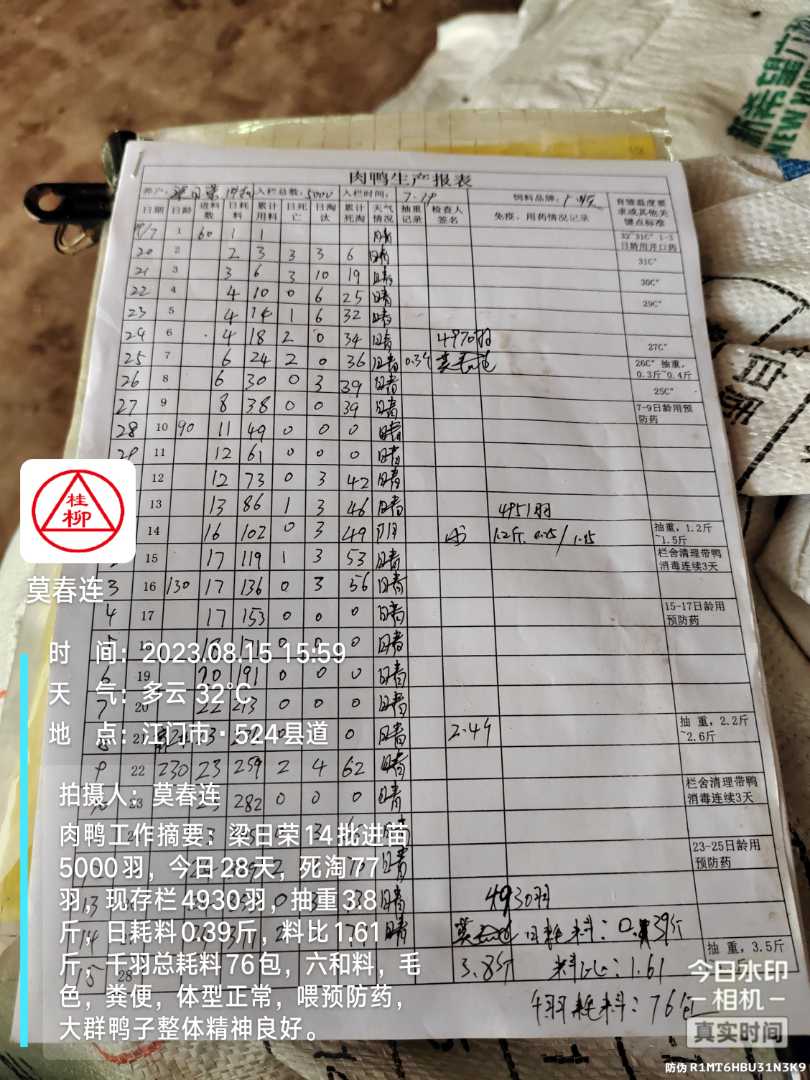 新希望六
NEW HOPE
肉鸭生产报表
养户: 梁日荣 14批 入栏总数: 5000 入栏时间: 7.19 饲料品牌:
日期 日龄 进料数 日耗料 累计用料 日死亡 日淘汰 累计死淘 天气情况 抽重记录 检查人签名 免疫、用药情况记录 育雏温度要求或其他关键点标准
19/7 1 60 1 1 晴 32~31C° 1-3日龄用开口药
20 2 2 3 3 3 6 晴 31C°
21 3 3 6 3 10 19 晴 30C°
22 4 4 10 0 6 25 晴 29C°
23 5 4 14 1 6 32 晴
24 6 4 18 2 0 34 晴 4970羽 27C°
25 7 6 24 2 0 36 晴 莫春连 26C° 抽重,0.3斤~0.4斤
26 8 6 30 0 3 39 晴 25C°
27 9 8 38 0 0 39 晴 7-9日龄用预防药
28 10 90 11 49 0 0 0 晴
29 11 12 61 0 0 0 晴
12 12 73 0 3 42 晴
13 13 86 1 3 46 晴 4951羽
14 16 102 0 3 49 阴 1.2斤 抽重,1.2斤~1.5斤
15 17 119 1 3 53 晴 栏舍清理带鸭消毒连续3天
3 16 130 17 136 0 3 56 晴
4 17 17 153 0 0 0 晴 15-17日龄用预防药
18 18 171 0 0 0 晴
6 19 20 191 0 0 0 晴
7 20 22 213 0 0 0 晴
21 晴 2.4斤 抽重,2.2斤~2.6斤
9 22 230 23 259 2 4 62 晴
23 23 282 0 0 0 晴 栏舍清理带鸭消毒连续3天
23-25日龄用预防药
13 晴 4930羽
14 晴 莫春连 日耗料: 0.39斤
15 28 3.8斤 料比: 1.61 抽重,3.5斤
千羽耗料: 76包
桂柳
莫春连
时 间: 2023.08.15 15:59
天 气: 多云 32℃
地 点: 江门市·524县道
拍摄人: 莫春连
肉鸭工作摘要: 梁日荣14批进苗
5000羽, 今日28天, 死淘77
羽, 现存栏4930羽, 抽重3.8
斤, 日耗料0.39斤, 料比1.61
斤, 千羽总耗料76包, 六和料, 毛
色, 粪便, 体型正常, 喂预防药,
大群鸭子整体精神良好。
今日水印
相机
真实时间
防伪 R1MT6HBU31N3K9